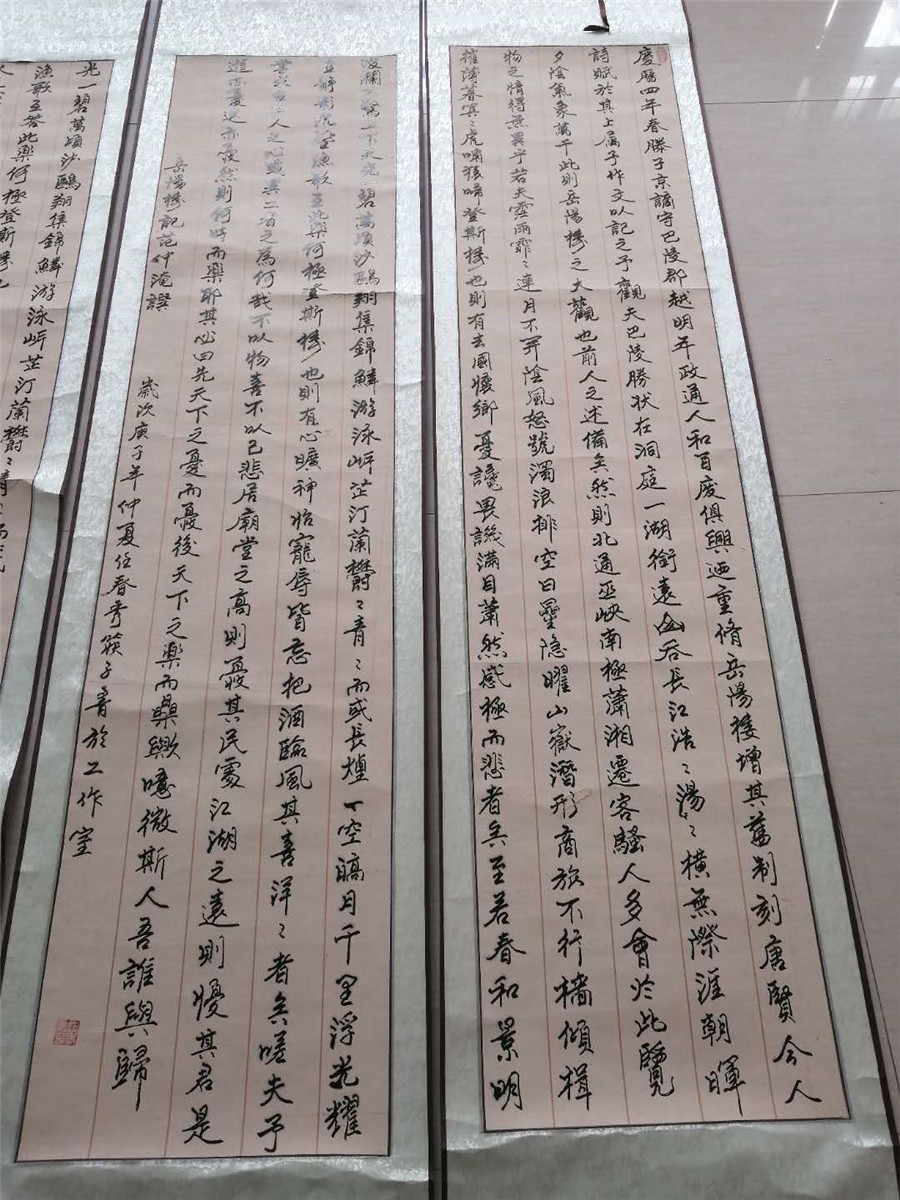 慶曆四年春滕子京謫守巴陵郡越明年政通人和百廢俱興迺重脩岳陽樓增其舊制刻唐賢今人
詩賦於其上属予作文以記之予觀夫巴陵勝狀在洞庭一湖銜遠山吞長江浩〻湯〻橫無際涯朝暉
夕陰氣象萬千此則岳陽樓之大觀也前人之述備矣然則北通巫峽南極瀟湘遷客騷人多會於此覽
物之情得無異乎若夫霪雨霏〻連月不開陰風怒號濁浪排空日星隱曜山嶽潛形商旅不行檣傾楫
摧薄暮冥〻虎嘯猿啼登斯樓也則有去國懷鄉憂讒畏譏滿目蕭然感極而悲者矣至若春和景明
波瀾不驚上下天光一碧萬頃沙鷗翔集錦鱗游泳岸芷汀蘭鬱〻青〻而或長煙一空皜月千里浮光耀
金靜影沉璧漁歌互答此樂何極登斯樓也則有心曠神怡寵辱皆忘把酒臨風其喜洋〻者矣嗟夫予
嘗求古仁人之心或異二者之為何哉不以物喜不以己悲居廟堂之高則憂其民處江湖之遠則憂其君是
進亦憂退亦憂然則何時而樂耶其心曰先天下之憂而憂後天下之樂而樂歟噫微斯人吾誰與歸
岳陽樓記范仲淹譔 歲次庚子年仲夏任春秀筷子書於工作室
光一碧萬頃沙鷗翔集錦鱗游泳岸芷汀蘭鬱〻青
漁歌互答此樂何極登斯樓也